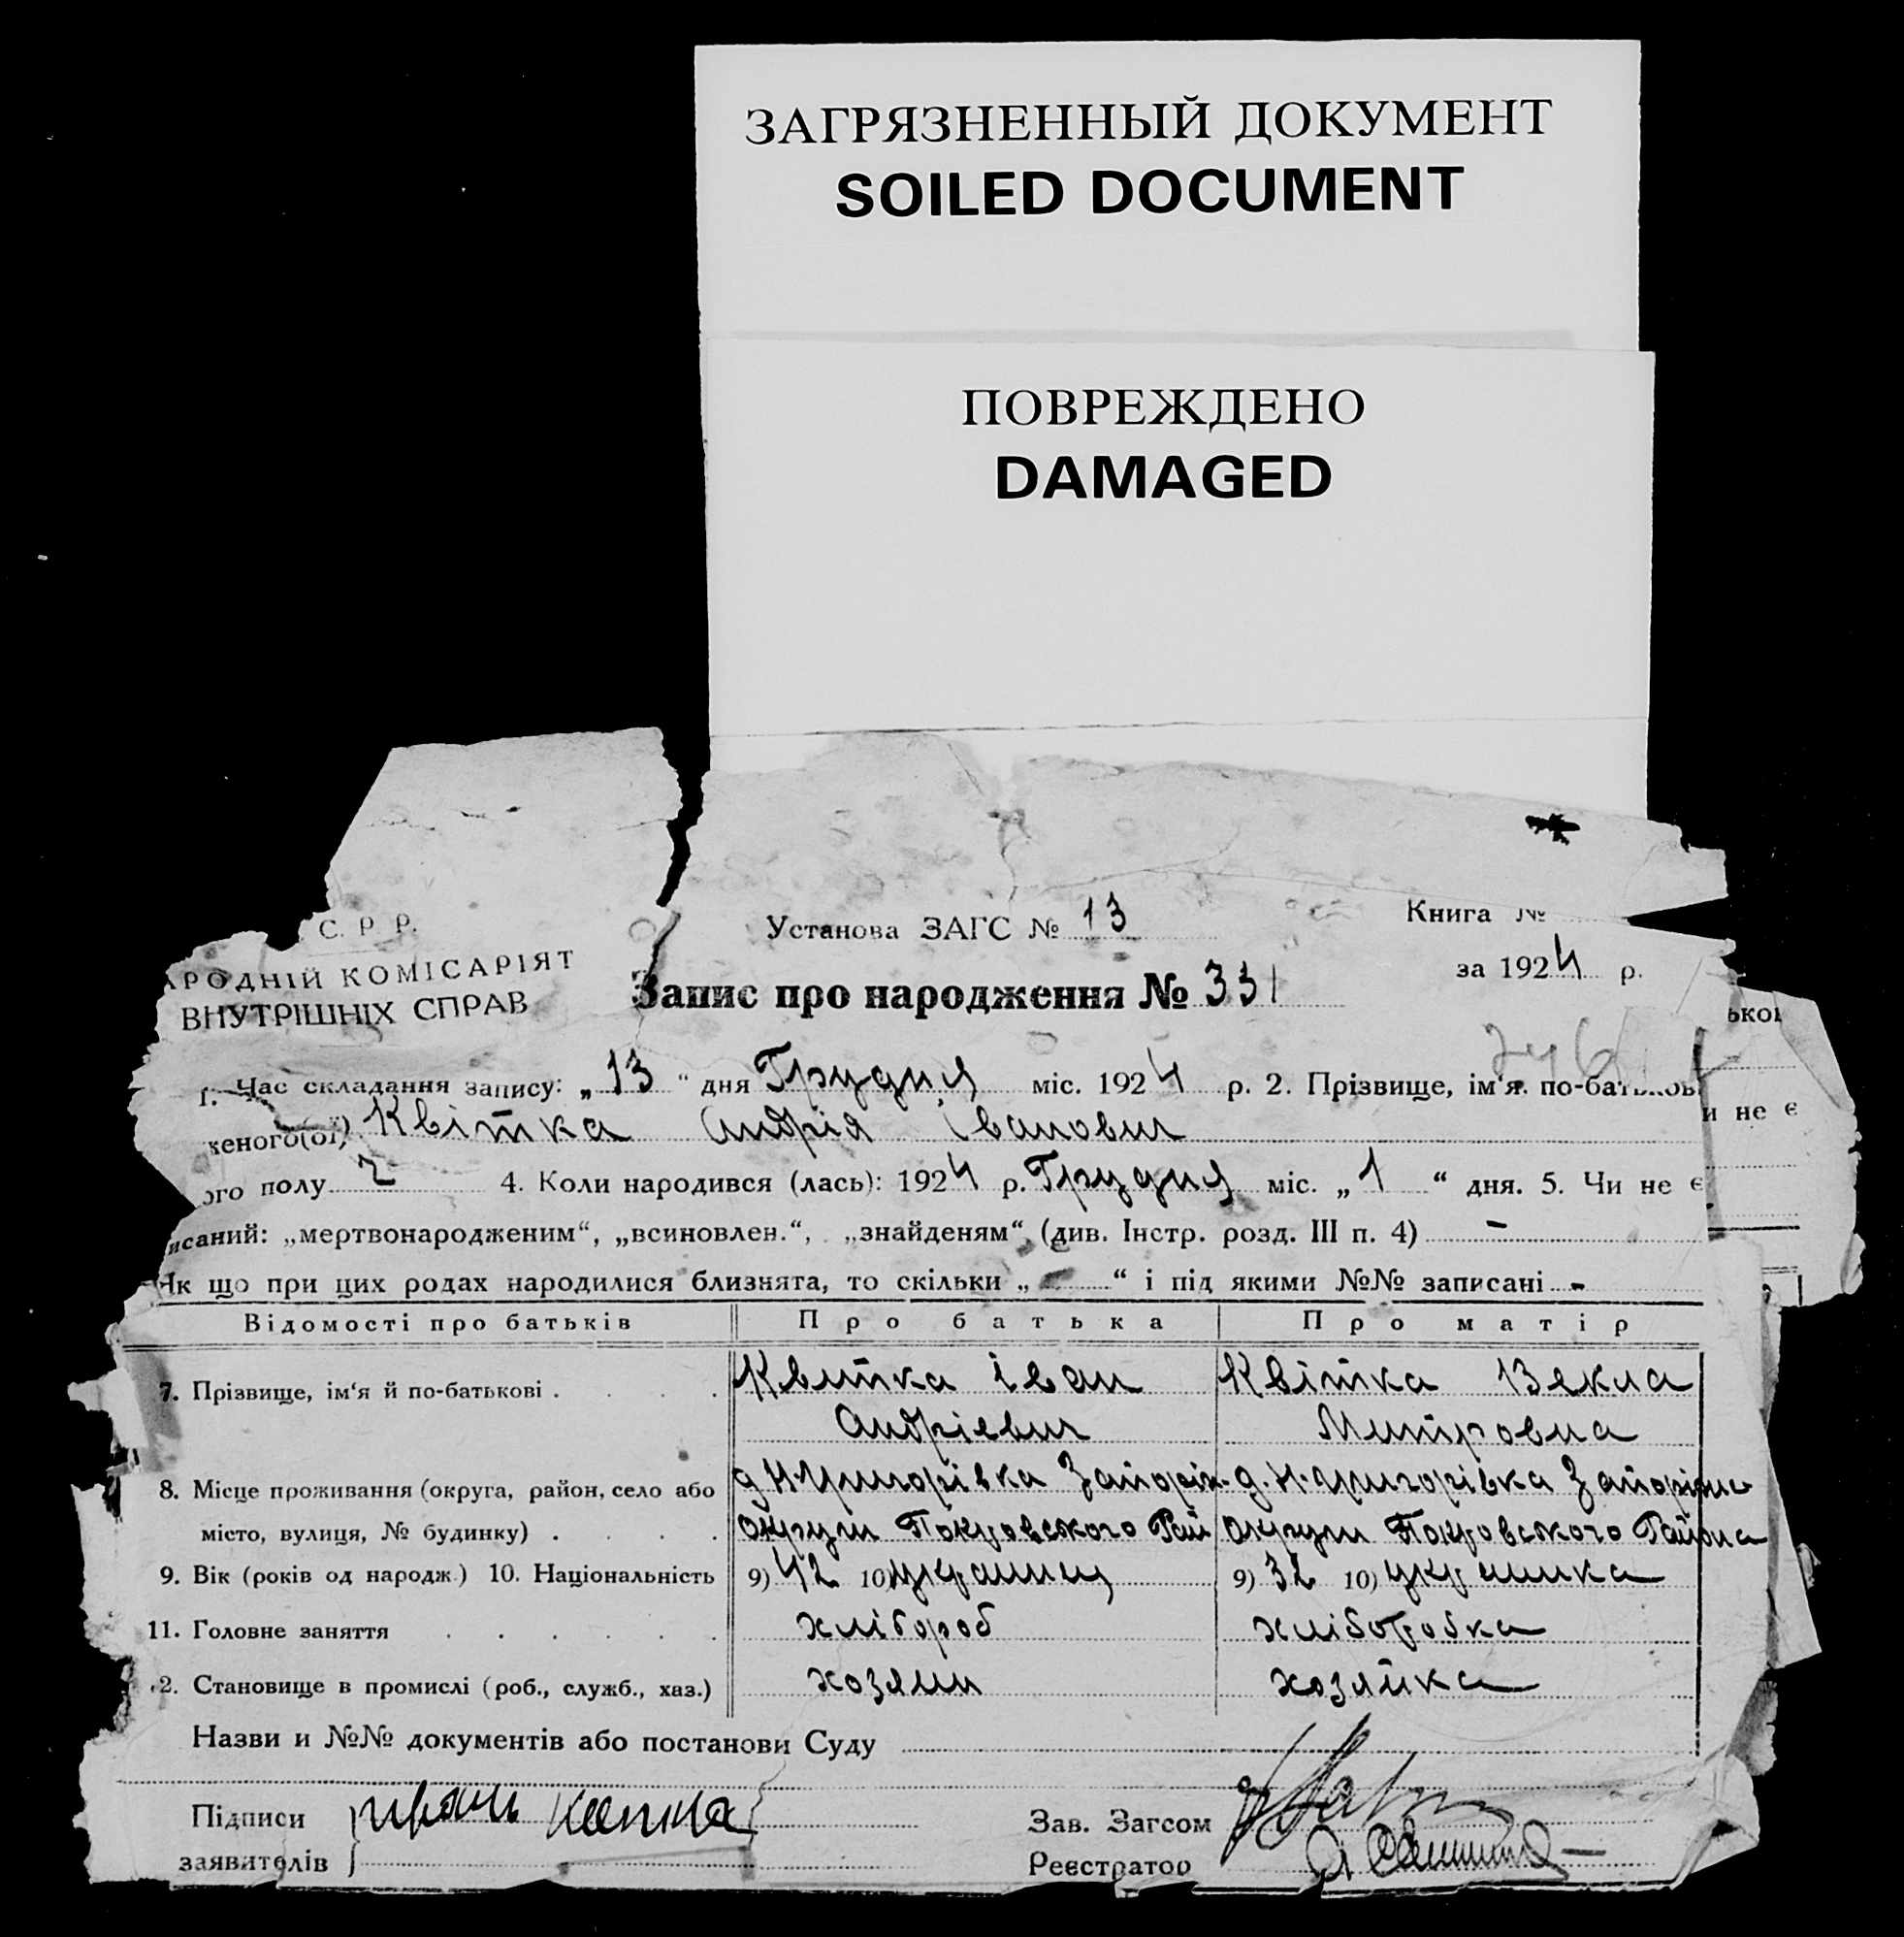 ЗАГРЯЗНЕННЫЙ ДОКУМЕНТ
SOILED DOCUMENT
ПОВРЕЖДЕНО
DAMAGED
С. Р. Р.
АРОДНІЙ КОМІСАРІЯТ
ВНУТРІШНІХ СПРАВ
Установа ЗАГС № 13
Книга №
за 1924 р.
Запис про народження № 331
ької
1. Час складання запису: „13“ дня Грудня міс. 1924 р. 2. Прізвище, ім'я. по-батькові
и не є
женого(ої) Квітка Андрія Іванович
ого полу 2 4. Коли народився (лась): 1924 р. Грудня міс. „1“ дня. 5. Чи не є
исаний: „мертвонародженим“, „всиновлен.“, „знайденям“ (див. Інстр. розд. III п. 4) -
Як що при цих родах народилися близнята, то скільки „ “ і під якими №№ записані -
Відомості про батьків Про батька Про матір
7. Прізвище, ім'я й по-батькові . . . . Квитка Іван Квітка Векла
Андрієвич Митровна
8. Місце проживання (округа, район, село або д Н-Григорівка Запоріж. д. Н-Григорівка
місто, вулиця, № будинку) . . . . округи Покровського Рай округи Покровського Района
9. Вік (років од народж.) 10. Національність 9) 42 10) украинец 9) 32 10)
11. Головне заняття . . . . . . хлібороб хліборобка
2. Становище в промислі (роб., служб., хаз.) хозяин хозяйка
Назви и №№ документів або постанови Суду
Підписи
заявителів
Зав. Загсом
Реєстратор